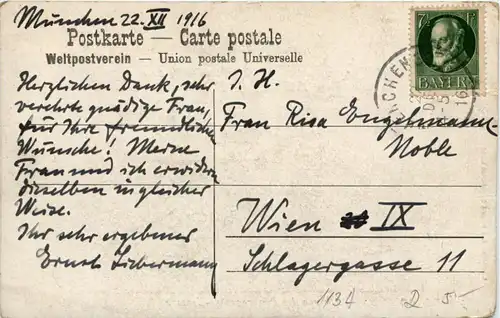 München 22. XII 1916
Postkarte — Carte postale
Weltpostverein — Union postale Universelle
Herzlichen Dank, sehr
verehrte gnädige Frau,
für Ihre freundlichen
Wünsche! Meine
Frau und ich erwidern
dieselben in gleicher
Weise.
Ihr sehr ergebener
Ernst Liebermann
7½ Pf
BAYERN
MÜNCHEN
I. H.
Frau Risa Engelmann
Noble
Wien IX
Schlagergasse 11
1134